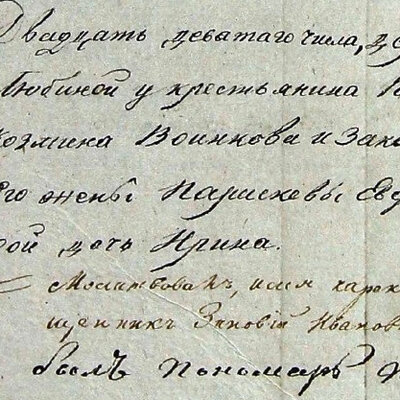 Двадцать деватаго числа, де
Любиной у крестьянина
Козмина Воинкова и зако
его жены Парискевы Ев
ой дочь Ирина.
Молитвовалъ, и имя нарек
щенникъ Зиновій Ивано
былъ пономарь